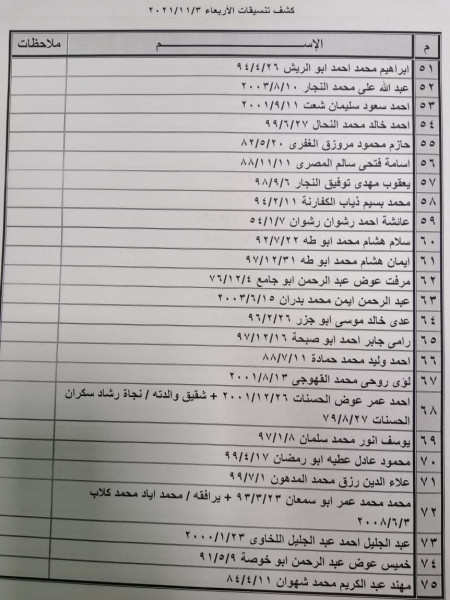 كشف تنسيقات الأربعاء ٢٠٢١/١١/٣
م الإســـــــــم ملاحظات
٥١ ابراهيم محمد احمد ابو الريش ٩٤/٤/٢٦
٥٢ عبد الله على محمد النجار ٢٠٠٣/٨/١٠
٥٣ احمد سعود سليمان شعت ٢٠٠١/٩/١١
٥٤ احمد خالد محمد النحال ٩٩/٦/٢٧
٥٥ حازم محمود مرزوق الغفرى ٨٢/٥/٢٠
٥٦ اسامة فتحى سالم المصرى ٨٨/١١/١١
٥٧ يعقوب مهدى توفيق النجار ٩٨/٩/٦
٥٨ محمد بسيم ذياب الكفارنة ٩٤/٢/١١
٥٩ عائشة احمد رشوان رشوان ٥٤/١/٧
٦٠ سلام هشام محمد ابو طه ٩٢/٧/٢٢
٦١ ايمان هشام محمد ابو طه ٩٧/١٢/٣١
٦٢ مرفت عوض عبد الرحمن ابو جامع ٧٦/١٢/٤
٦٣ عبد الرحمن ايمن محمد بدران ٢٠٠٣/٦/١٥
٦٤ عدى خالد موسى ابو جزر ٩٦/٢/٢٦
٦٥ رامى جابر احمد ابو صبحة ٩٧/١٢/١٦
٦٦ احمد وليد محمد حمادة ٨٨/٧/١١
٦٧ لؤى روحى محمد القهوجى ٢٠٠١/٨/١٣
٦٨ احمد عمر عوض الحسنات ٢٠٠١/١٢/٢٦ + شقيق والدته / نجاة رشاد سكران
الحسنات ٧٩/٨/٢٧
٦٩ يوسف انور محمد سلمان ٩٧/١/٨
٧٠ محمود عادل عطيه ابو رمضان ٩٩/٤/١٧
٧١ علاء الدين رزق محمد المدهون ٩٩/٧/١
٧٢ محمد محمد عمر ابو سمعان ٩٣/٣/٢٣ + يرافقه / محمد اياد محمد كلاب
٢٠٠٨/٦/٣
٧٣ عبد الجليل احمد عبد الجليل اللخاوى ٢٠٠٠/١/٢٣
٧٤ خميس عوض عبد الرحمن ابو خوصة ٩١/٥/٩
٧٥ مهند عبد الكريم محمد شهوان ٨٤/٤/١١